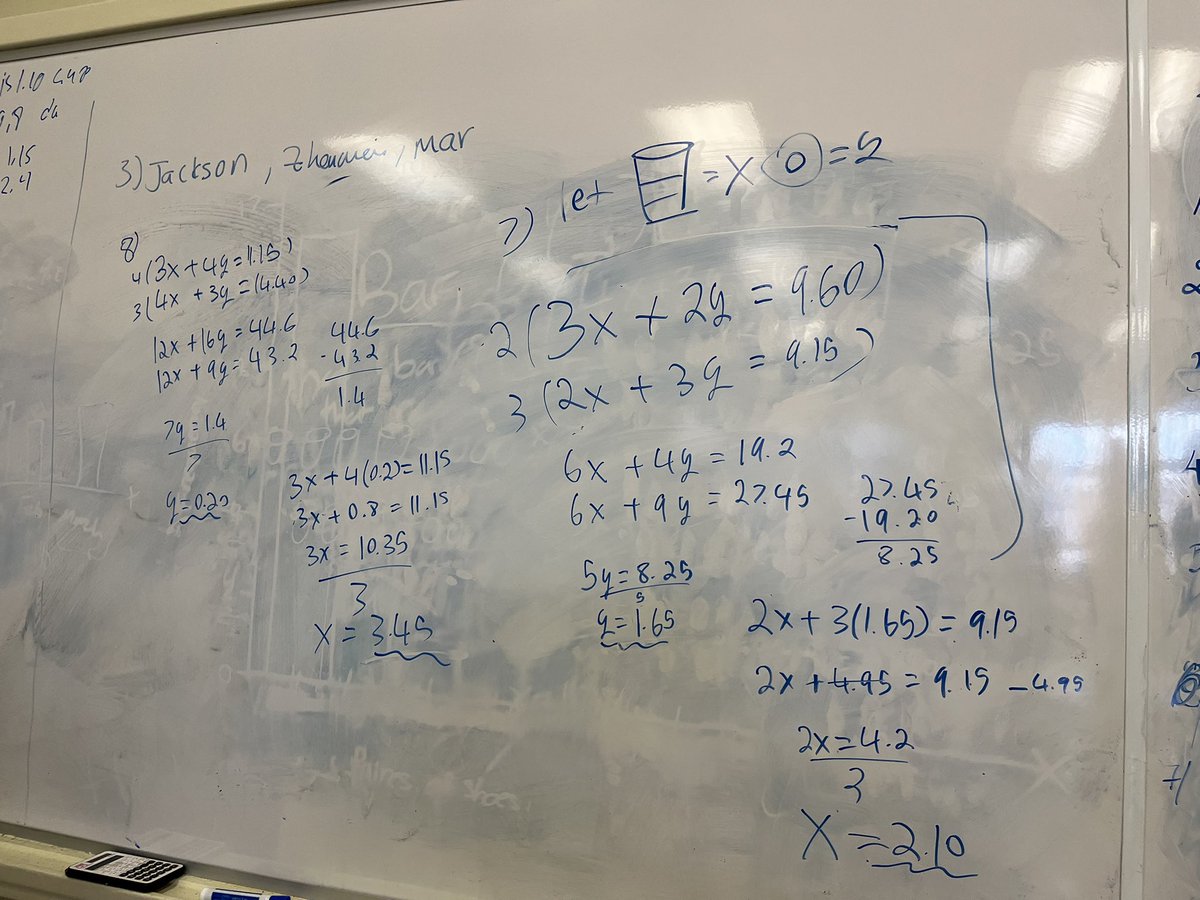 is 1.10
1.15
2.4
3) Jackson, , Mar
8)
4(3x + 4y = 11.15)
3(4x + 3y = 14.40)
12x + 16y = 44.6
12x + 9y = 43.2
44.6
- 43.2
1.4
7y = 1.4
7
y = 0.20
3x + 4(0.2) = 11.15
3x + 0.8 = 11.15
3x = 10.35
3
x = 3.45
7) let = x o = y
2(3x + 2y = 9.60)
3(2x + 3y = 9.15)
6x + 4y = 19.2
6x + 9y = 27.45
27.45
- 19.20
8.25
5y = 8.25
5
y = 1.65
2x + 3(1.65) = 9.15
2x + 4.95 = 9.15 - 4.95
2x = 4.2
2
x = 2.10